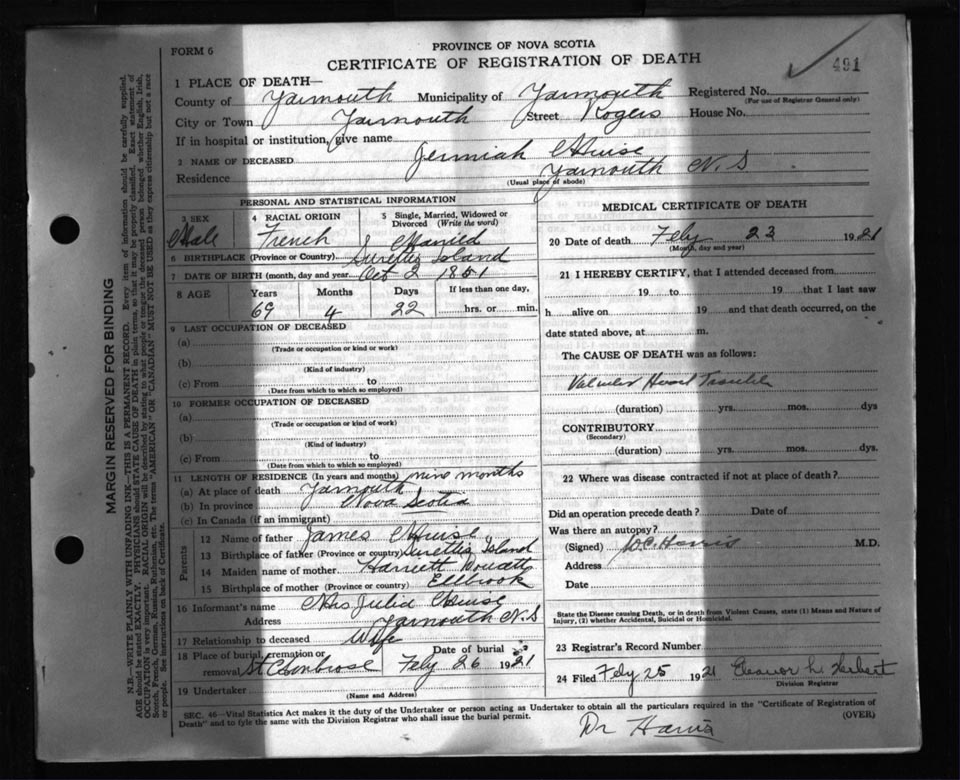 FORM 6
PROVINCE OF NOVA SCOTIA
CERTIFICATE OF REGISTRATION OF DEATH
491
1 PLACE OF DEATH—
County of Yarmouth Municipality of Yarmouth Registered No.
(For use of Registrar General only)
City or Town Yarmouth Street Rogers House No.
If in hospital or institution, give name
2 NAME OF DECEASED Jermiah
Residence Yarmouth N.S
(Usual place of abode)
PERSONAL AND STATISTICAL INFORMATION
3 SEX
Male
4 RACIAL ORIGIN
French
5 Single, Married, Widowed or Divorced (Write the word)
Married
6 BIRTHPLACE (Province or Country) Surettes Island
7 DATE OF BIRTH (month, day and year) Oct 2 1851
8 AGE
Years Months Days If less than one day,
69 4 22 hrs. or min.
9 LAST OCCUPATION OF DECEASED
(a)
(Trade or occupation or kind or work)
(b)
(Kind of industry)
(c) From to
(Date from which to which so employed)
10 FORMER OCCUPATION OF DECEASED
(a)
(Trade or occupation or kind of work)
(b)
(Kind of industry)
(c) From to
(Date from which to which so employed)
11 LENGTH OF RESIDENCE (In years and months) nine months
(a) At place of death Yarmouth
(b) In province Nova Scotia
(c) In Canada (if an immigrant)
Parents
12 Name of father James
13 Birthplace of father (Province or country) Surettes Island
14 Maiden name of mother Harriett
15 Birthplace of mother (Province or country) Ellbrook
16 Informant's name Mrs Julia
Address Yarmouth N.S
17 Relationship to deceased Wife
18 Place of burial, cremation or removal St Ambrose
Date of burial
Feby 26 1921
19 Undertaker
(Name and Address)
MEDICAL CERTIFICATE OF DEATH
20 Date of death Feby 23 1921
(Month, day and year)
21 I HEREBY CERTIFY, that I attended deceased from
19 to 19 that I last saw
h alive on 19 and that death occurred, on the
date stated above, at m.
The CAUSE OF DEATH was as follows:
Valvular Heart Trouble
(duration) yrs. mos. dys
CONTRIBUTORY
(Secondary)
(duration) yrs. mos. dys
22 Where was disease contracted if not at place of death?
Did an operation precede death? Date of
Was there an autopsy?
(Signed) Harris M.D.
Address
Date
State the Disease causing Death, or in death from Violent Causes, state (1) Means and Nature of
Injury, (2) whether Accidental, Suicidal or Homicidal.
23 Registrar's Record Number
24 Filed Feby 25 1921 Eleanor L. Herbert
Division Registrar
SEC. 46—Vital Statistics Act makes it the duty of the Undertaker or person acting as Undertaker to obtain all the particulars required in the "Certificate of Registration of
Death" and to fyle the same with the Division Registrar who shall issue the burial permit.
(OVER)
Dr Harris
MARGIN RESERVED FOR BINDING
N.B.—WRITE PLAINLY WITH UNFADING INK—THIS IS A PERMANENT RECORD. Every item of information should be carefully supplied.
AGE should be stated EXACTLY. PHYSICIANS should STATE CAUSE OF DEATH in plain terms, so that it may be properly classified. Exact statement of
OCCUPATION is very important. RACIAL ORIGIN will be described by stating to what people or tongue the deceased person belonged whether English, Irish,
Scotch, French, German, Russian, Ruthenian, etc. The terms "AMERICAN" OR "CANADIAN" MUST NOT BE USED as they express citizenship but not a race
or people. See instructions on back of Certificate.